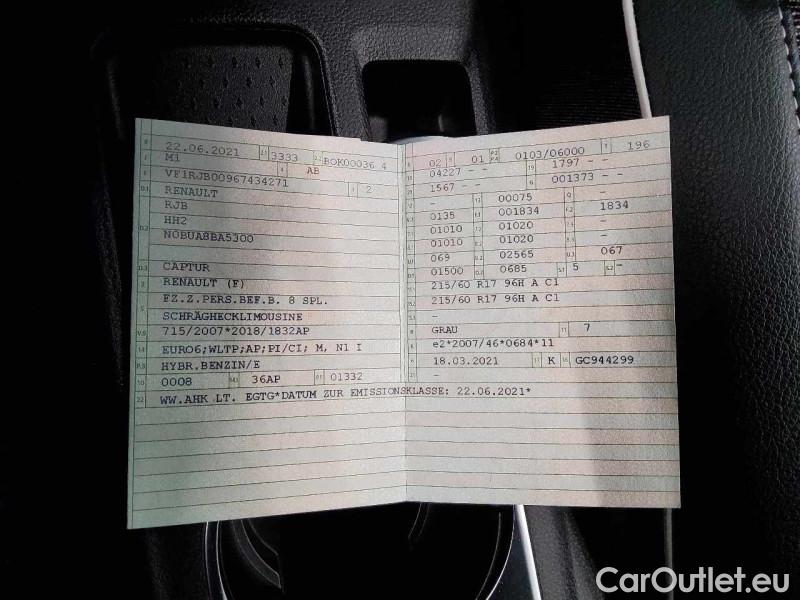 22.06.2021 2.1 3333 2.2 BOK00036 4
M1 AB
VF1RJB00967434271 2
D.1 RENAULT
RJB
D.2 HH2
N0BUA8BA5300
D.3 CAPTUR
2 RENAULT (F)
5 FZ.Z.PERS.BEF.B. 8 SPL.
SCHRÄGHECKLIMOUSINE
V.9 715/2007*2018/1832AP
14 EURO6;WLTP;AP;PI/CI; M, N1 I
P.3 HYBR.BENZIN/E
10 0008 14.1 36AP P.1 01332
22 WW.AHK LT. EGTG*DATUM ZUR EMISSIONSKLASSE: 22.06.2021*
02 01 P.2 P.4 0103/06000 T 196
04227 - - 1797 - -
1567 - - 001373 - -
- 00075 -
0135 001834 1834
01010 01020 -
01010 01020 -
069 02565 067
01500 0685 S.1 5 S.2 -
215/60 R17 96H A C1
215/60 R17 96H A C1
-
R GRAU 11 7
K e2*2007/46*0684*11
6 18.03.2021 17 K 16 GC944299
21 -
CarOutlet.eu